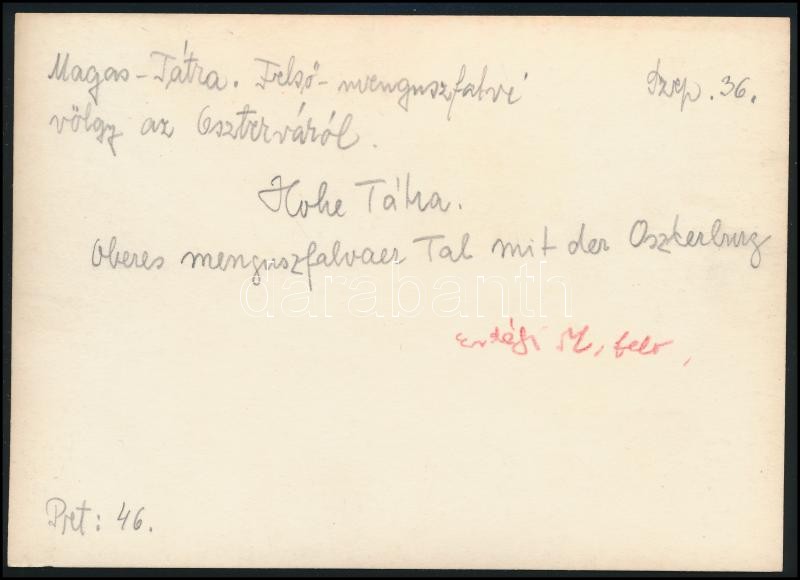 Magas-Tátra. Felső-menguszfalvi Szep. 36.
völgy az Oszterváról.
Hohe Tátra.
Oberes menguszfalvaer Tal mit der Oszterburg
darabanth
Erdélyi M. felv,
Pjet: 46.